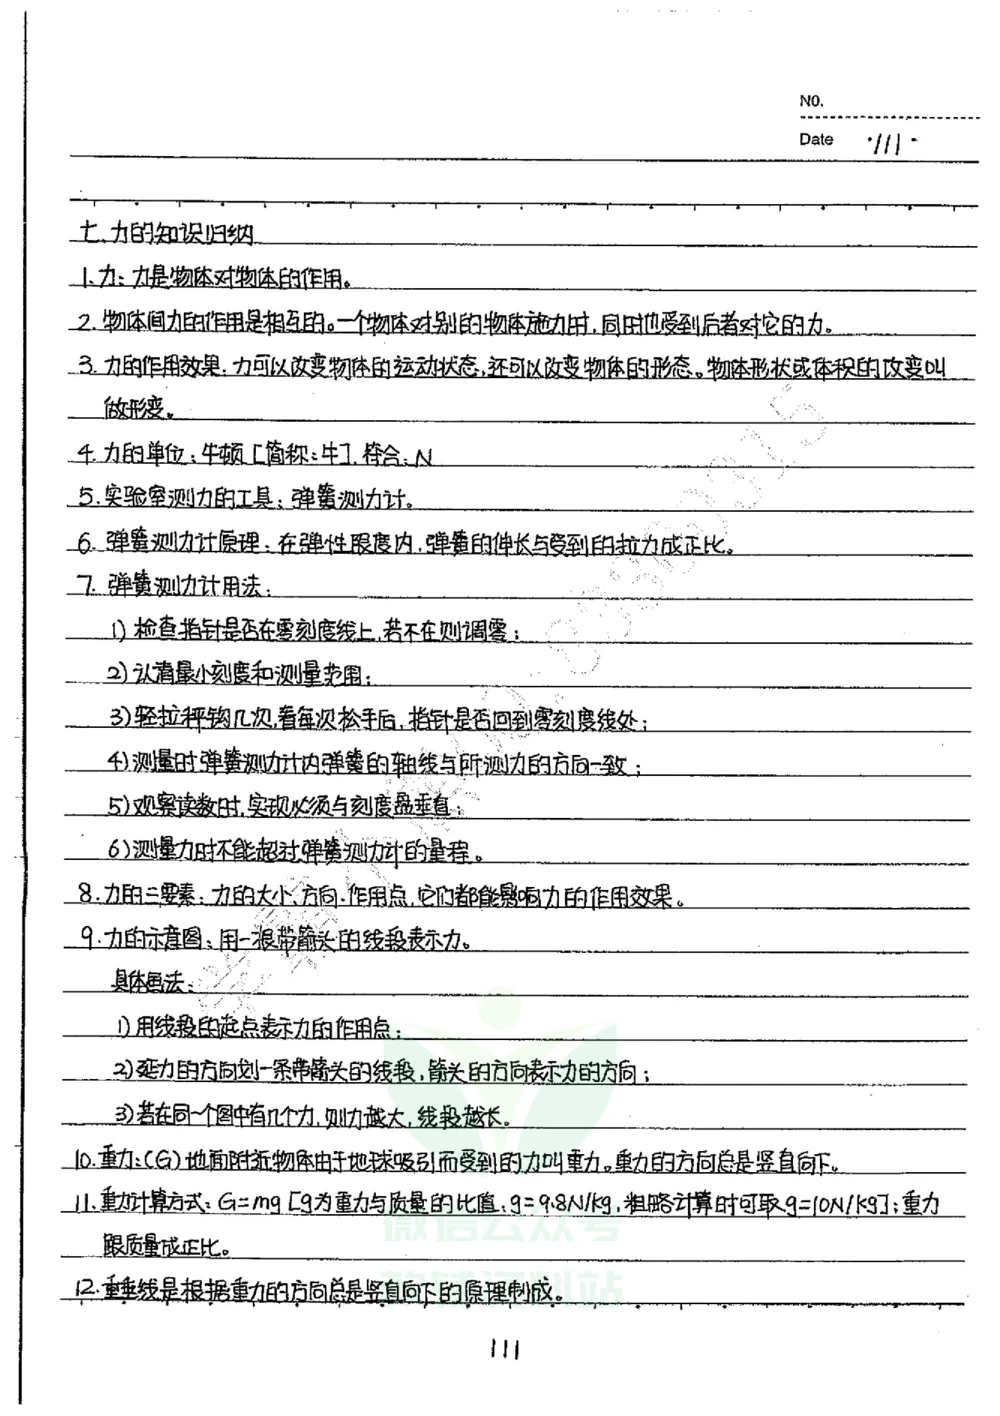 NO.
Date ·111·
七、力的知识归纳
1.力：力是物体对物体的作用。
2.物体间力的作用是相互的。一个物体对别的物体施力时，同时也受到后者对它的力。
3.力的作用效果：力可以改变物体的运动状态，还可以改变物体的形态。物体形状或体积的改变叫
做形变。
4.力的单位：牛顿［简称：牛］，符合：N
5.实验室测力的工具：弹簧测力计。
6.弹簧测力计原理：在弹性限度内，弹簧的伸长与受到的拉力成正比。
7.弹簧测力计用法：
1)检查指针是否在零刻度线上，若不在则调零；
2)认清最小刻度和测量范围；
3)轻拉秤钩几次，看每次松手后，指针是否回到零刻度线处；
4)测量时弹簧测力计内弹簧的轴线与所测力的方向一致；
5)观察读数时，实现必须与刻度盘垂直；
6)测量力时不能超过弹簧测力计的量程。
8.力的三要素：力的大小、方向、作用点，它们都能影响力的作用效果。
9.力的示意图：用一根带箭头的线段表示力。
具体画法：
1)用线段的起点表示力的作用点；
2)延力的方向划一条带箭头的线段，箭头的方向表示力的方向；
3)若在同一个图中有几个力，则力越大，线段越长。
10.重力：(G)地面附近物体由于地球吸引而受到的力叫重力。重力的方向总是竖直向下。
11.重力计算方式：G=mg［g为重力与质量的比值，g=9.8N/kg，粗略计算时可取g=10N/kg］；重力
跟质量成正比。
12.重垂线是根据重力的方向总是竖直向下的原理制成。
微信公众号
教辅资料站
111